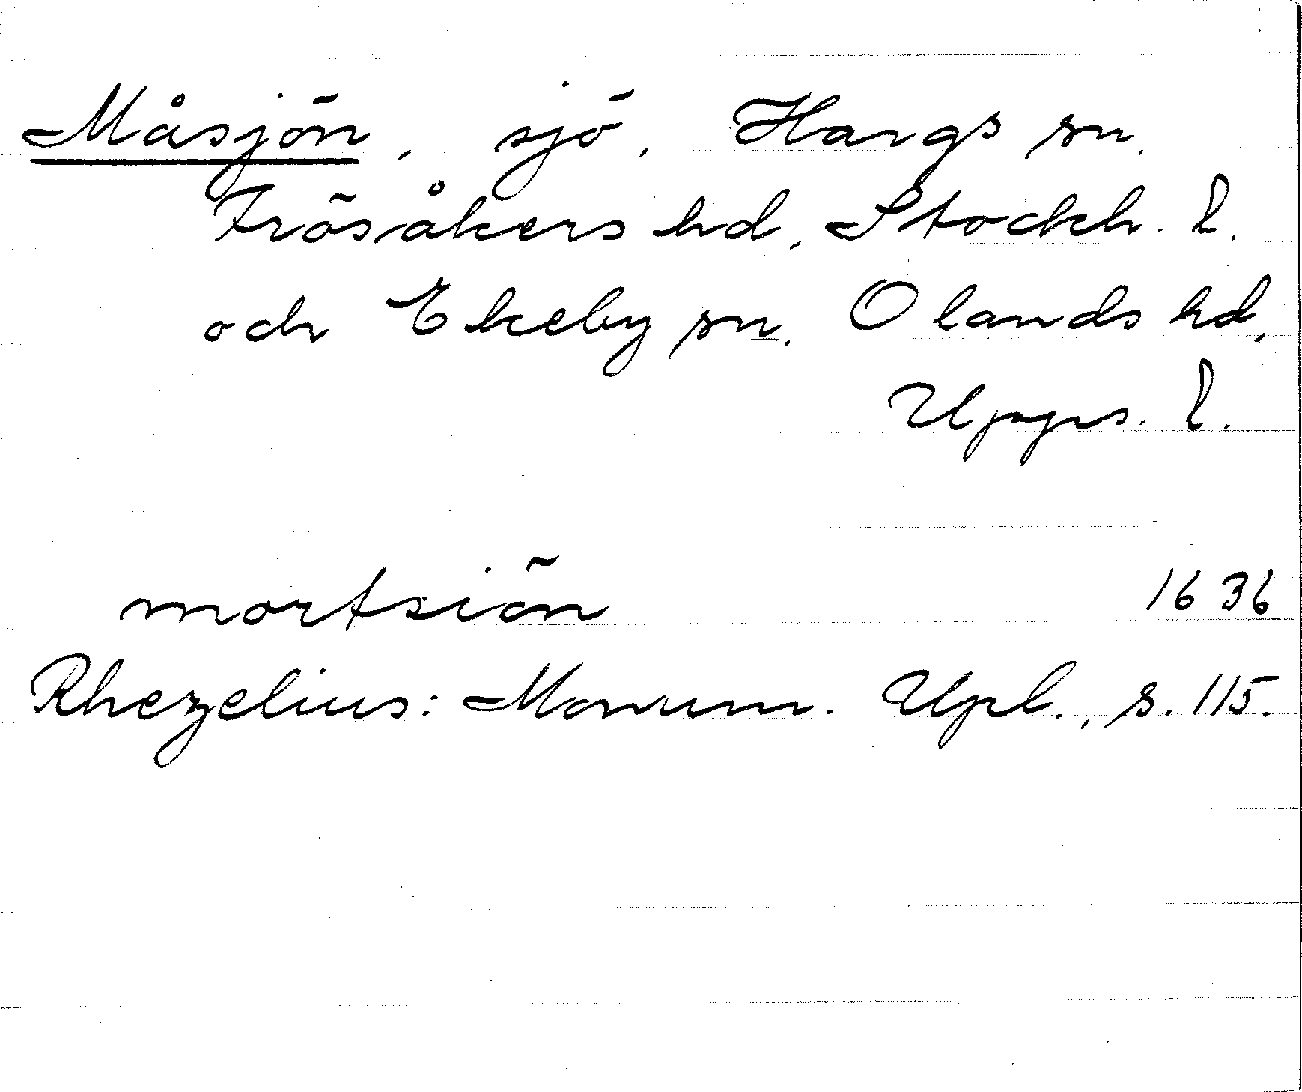 Måsjön, sjö, Hargs sn.
Frösåkers hd, Stockh. l.
och Ekeby sn. Olands hd,
Upps. l.
mortsiön 1636
Rhezelius: Monum. Upl., s. 115.